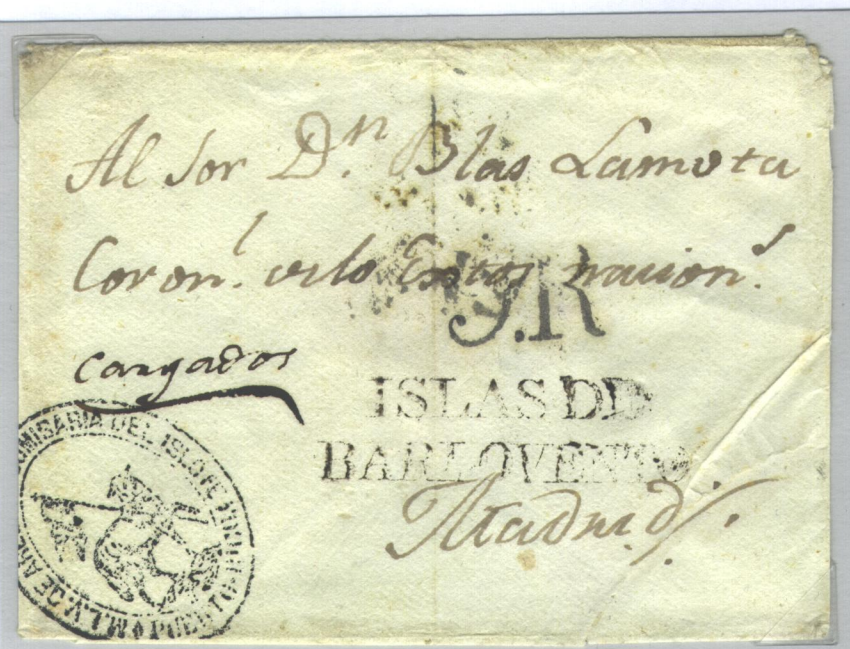 Al Sor Dn. Blas Lamota
Coronl. de los Extos nacions.
cargados
9.R
ISLAS DE
BARLOVENTO.
Madrid
COMISARIA DEL ISLO DE PUERTO M.L.V. DE